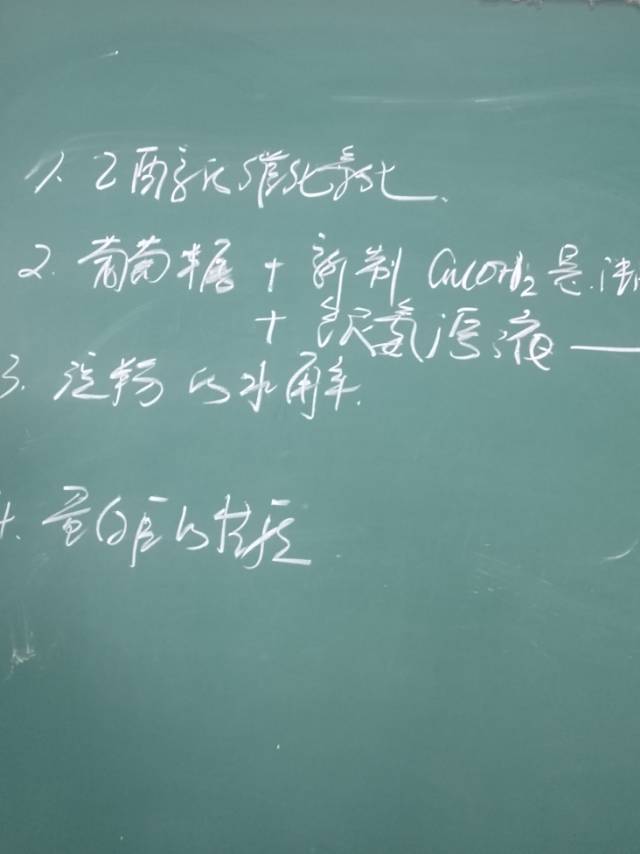 1. 乙醇的催化氧化.
2. 葡萄糖 + 新制 Cu(OH)2 悬浊
+ 银氨溶液 —
3. 淀粉的水解.
4. 蛋白质的性质.